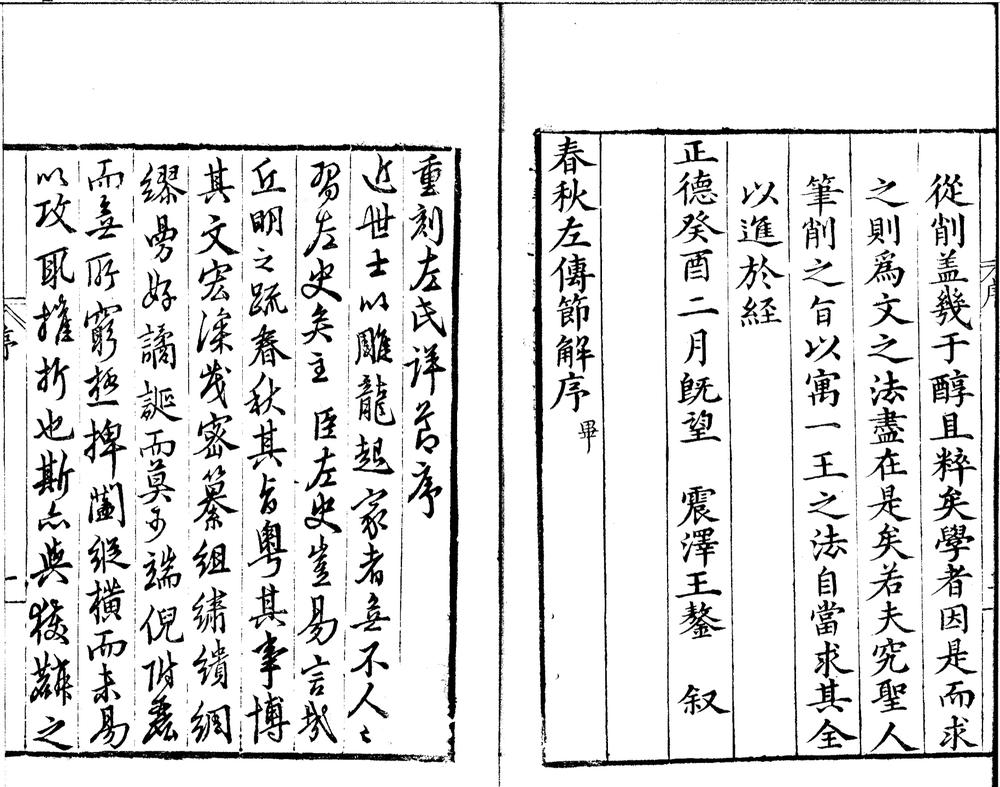 從削盖幾于醇且粹矣學者因是而求
之則爲文之法盡在是矣若夫究聖人
筆削之旨以寓一王之法自當求其全
以進於経
正德癸酉二月旣望 震澤王鏊 叙
春秋左傳節解序 畢
重刻左氏详节序
近世士以雕龍起家者無不人〻
習左史矣主臣左史豈易言哉
丘明之疏春秋其旨奧其事博
其文宏深茂密纂組繡繢綢
繆曼好譎誕而莫可端倪附麗
而無所窮極捭闔縱橫而未易
以攻取摧折也斯亦與之
序